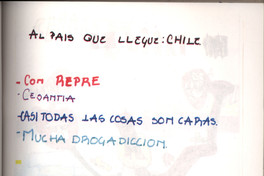 AL PAIS QUE LLEGUE: CHILE
- COM REPRE
- CEGANMA
- CASI TODAS LAS COSAS SOM CARAS.
- MUCHA DROGADICCION.